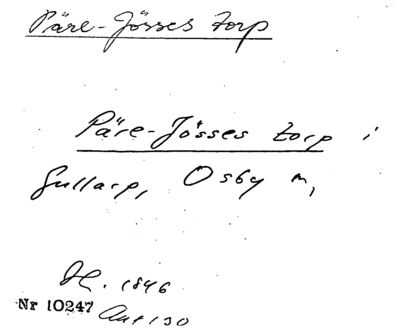 Päre-Jösses torp
Päre-Jösses torp i
Gullarp, Osby sn,
H. 1846
Nr 10247